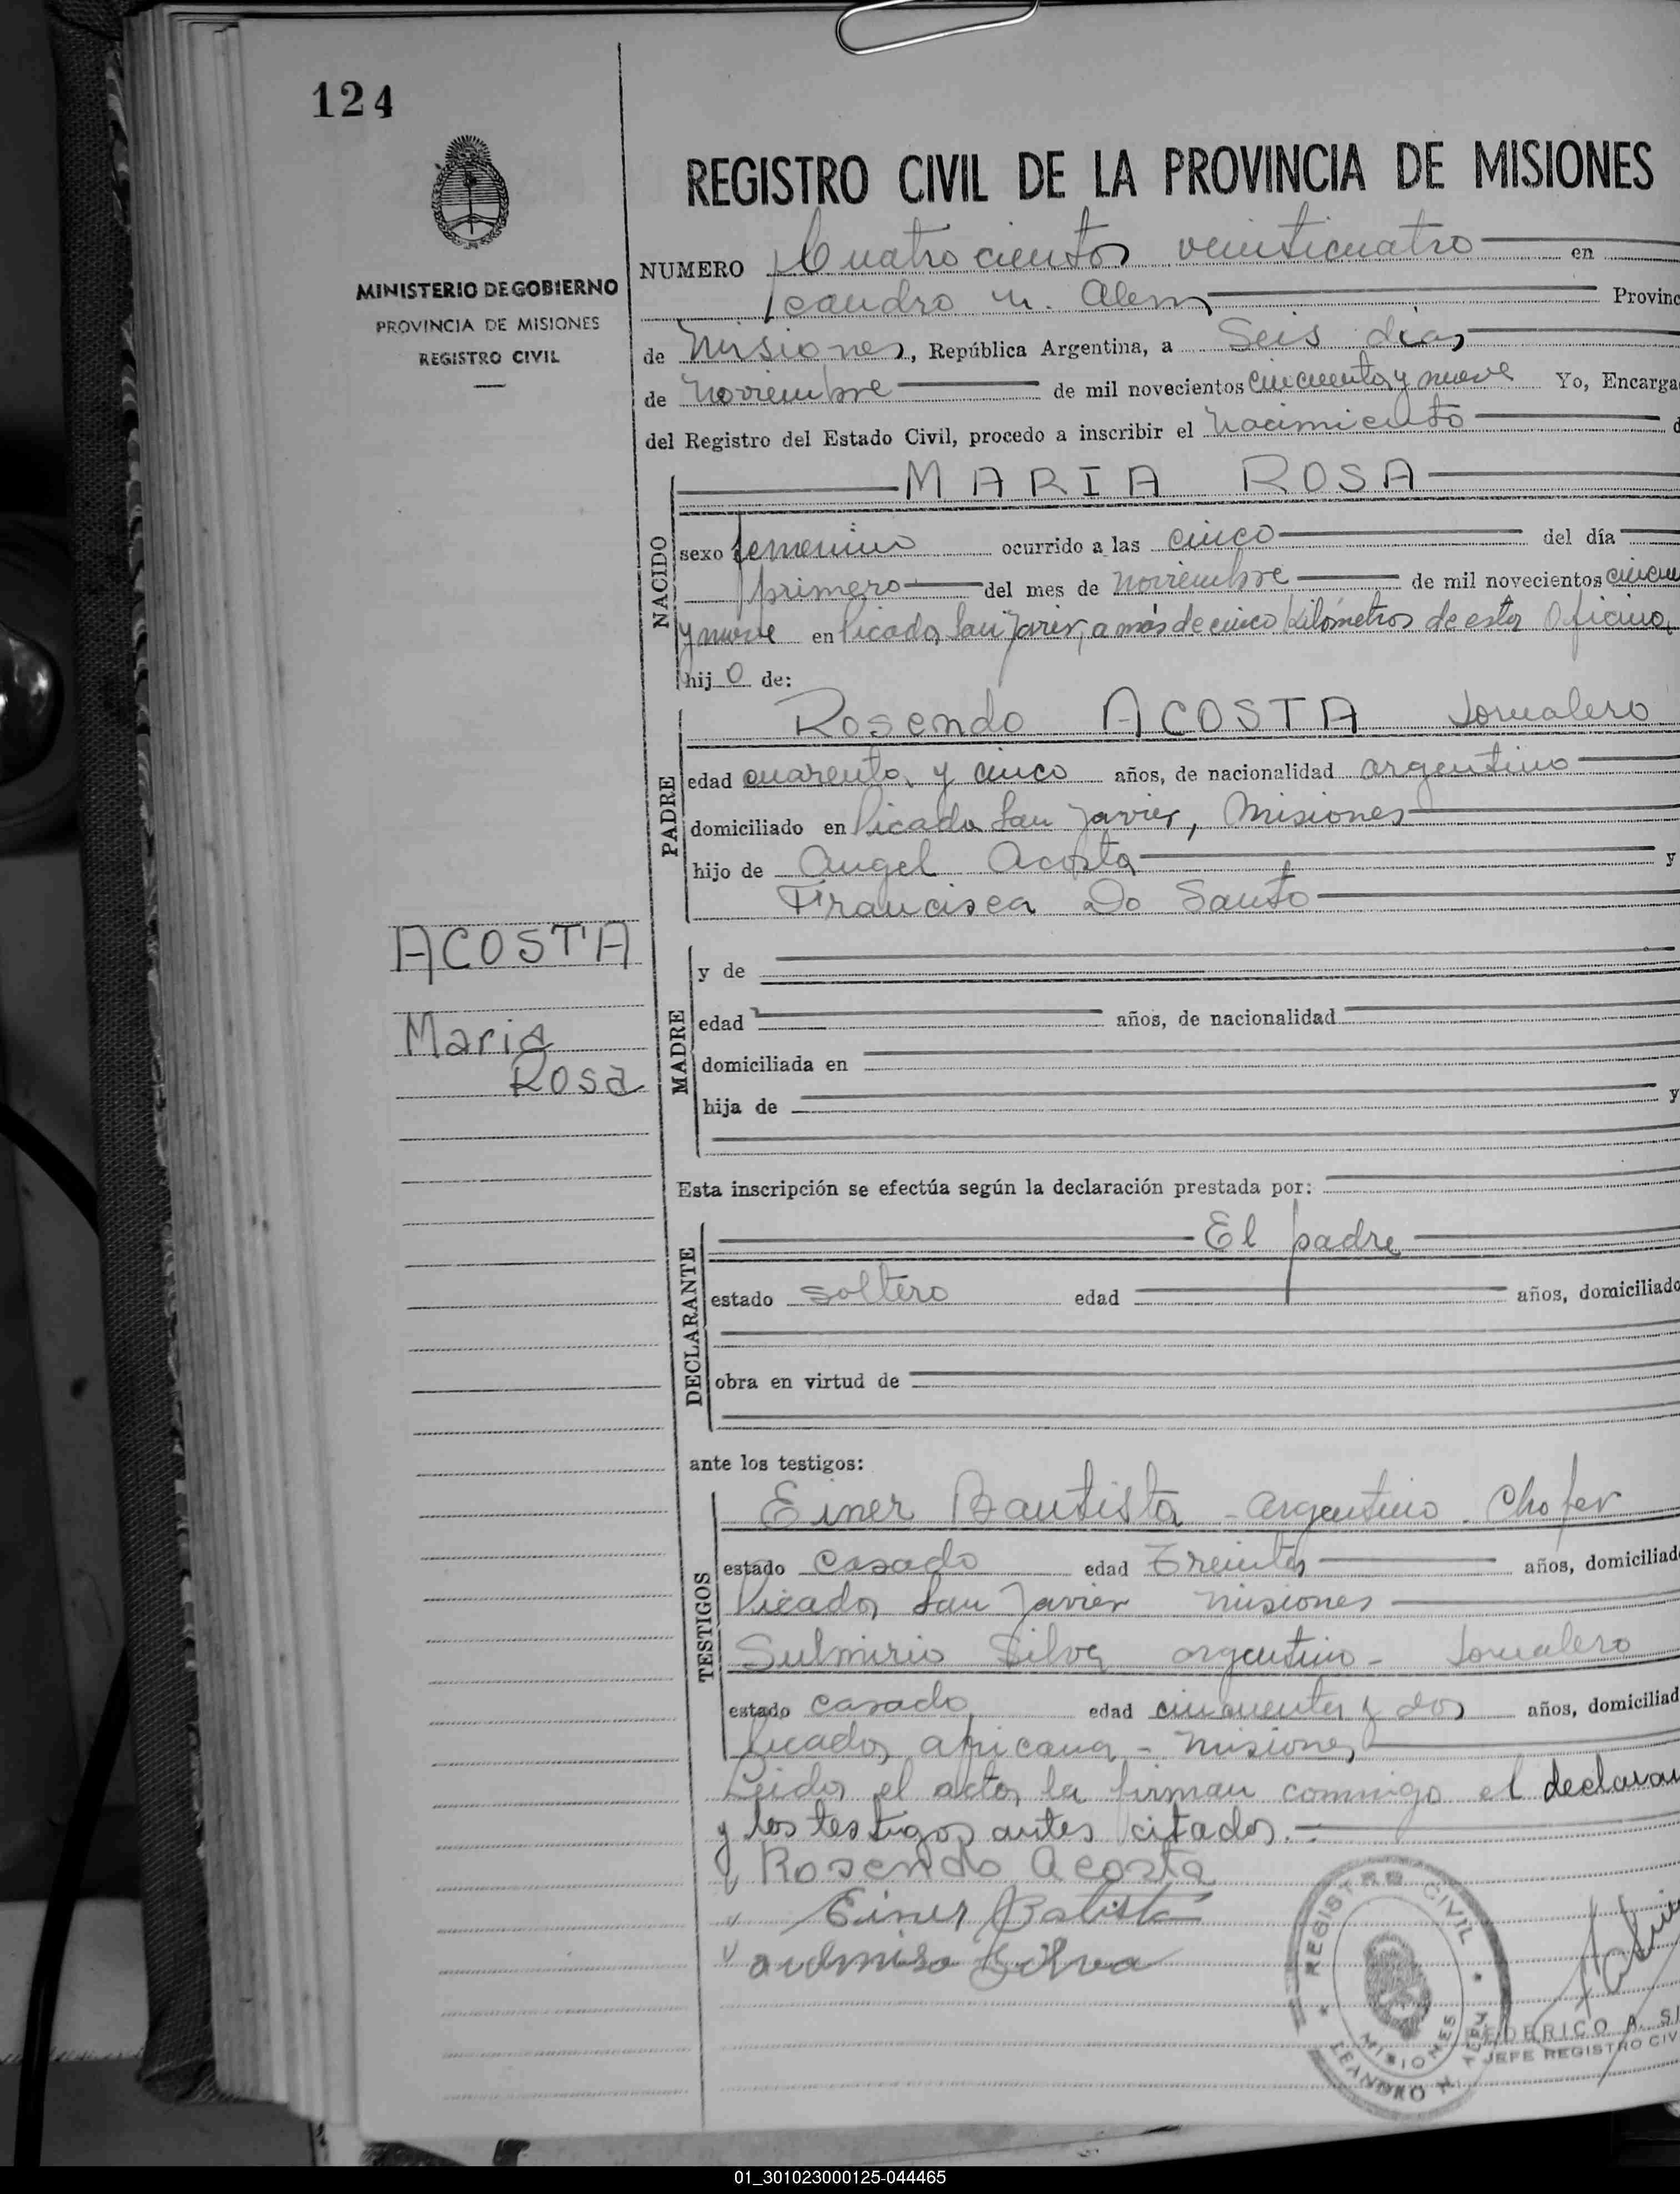 124
REGISTRO CIVIL DE LA PROVINCIA DE MISIONES
MINISTERIO DE GOBIERNO
PROVINCIA DE MISIONES
REGISTRO CIVIL
NUMERO Cuatrocientos veinticuatro en
Leandro N. Alem Provinc
de Misiones, República Argentina, a Seis dias
de Noviembre de mil novecientos cincuenta y nueve Yo, Encarga
del Registro del Estado Civil, procedo a inscribir el Nacimiento d
NACIDO
MARIA ROSA
sexo femenino ocurrido a las cinco del día
primero del mes de noviembre de mil novecientos cincu
y nueve en Picada San Javier, a más de cinco Kilómetros de esta Oficina
hij a de:
PADRE
Rosendo ACOSTA Jornalero
edad cuarenta y cinco años, de nacionalidad argentino
domiciliado en Picada San Javier, Misiones
hijo de Angel Acosta y
Francisca Do Santo
ACOSTA
Maria
Rosa
MADRE
y de
edad años, de nacionalidad
domiciliada en
hija de y
Esta inscripción se efectúa según la declaración prestada por:
DECLARANTE
El padre
estado soltero edad años, domiciliado
obra en virtud de
ante los testigos:
TESTIGOS
Einer Bautista - argentino. Chofer
estado casado edad Treinta años, domiciliad
Picada San Javier Misiones
Sulmirio Silva argentino - Jornalero
estado casado edad cincuenta y dos años, domiciliad
Picada africana - Misiones
Leida el acta, la firman conmigo el declaran
y los testigos antes citados. -
Rosendo Acosta
" Einer Batista
" Silva
REGISTRO CIVIL
MISIONES
LEANDRO N. ALEM
FEDERICO A. S
JEFE REGISTRO CIV
01_301023000125-044465